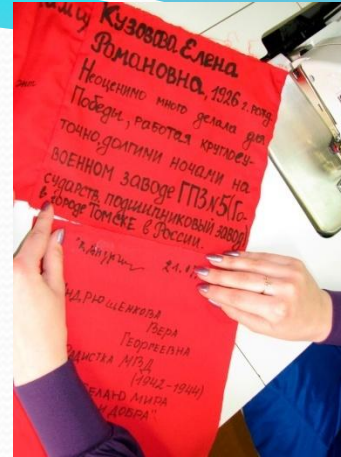 Кузовова Елена
Романовна, 1926 г. рожд.
Неоценимо много делала для
Победы, работая круглосу-
точно, долгими ночами на
военном заводе ГПЗ №5 (Го-
сударств. подшипниковый завод)
в городе Томске в России.
21.0
НДРЮЩЕНКОВА
ВЕРА
ГЕОРГИЕВНА
ДИСТКА МПВД
(1942-1944)
ЕЛАЮ МИРА
И ДОБРА".